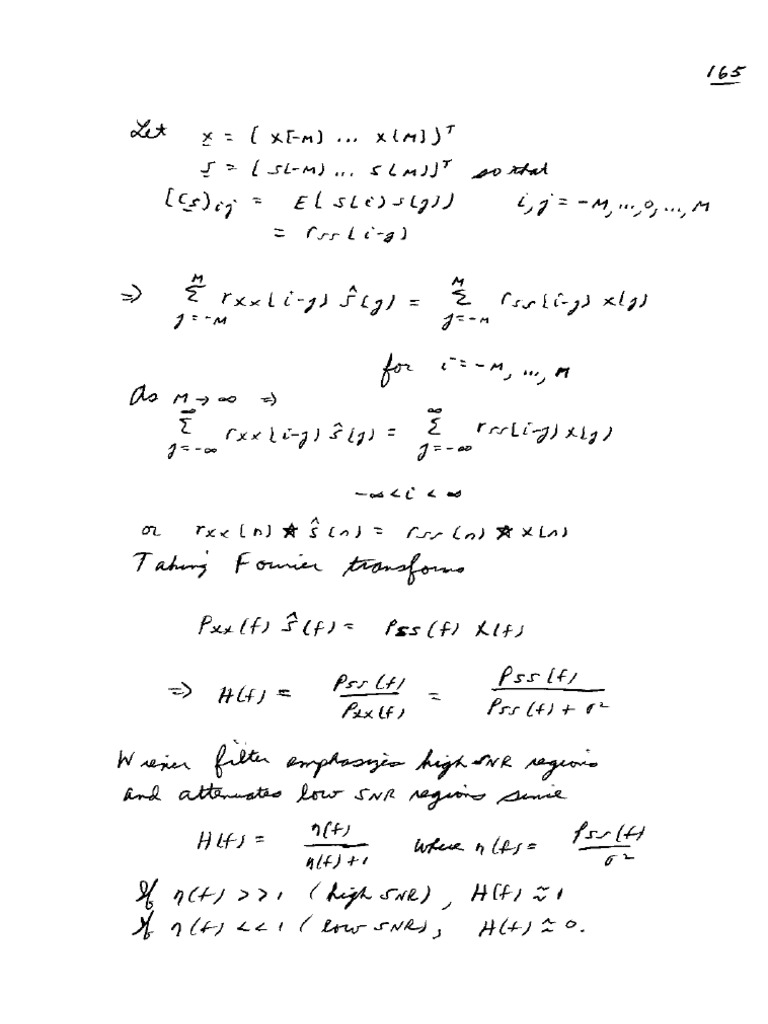 165
Let x = (x[-M] ... x[M])ᵀ
s = (s[-M] ... s[M])ᵀ so that
[Cs]ij = E(s[i]s[j]) i,j = -M,...,0,...,M
= rss[i-j]
⇒ ∑_{j=-M}^{M} rxx[i-j] ŝ[j] = ∑_{j=-M}^{M} rss[i-j] x[j]
for i = -M, ..., M
As M → ∞ ⇒
∑_{j=-∞}^{∞} rxx[i-j] ŝ[j] = ∑_{j=-∞}^{∞} rss[i-j] x[j]
-∞ < i < ∞
or rxx[n] ★ ŝ[n] = rss[n] ★ x[n]
Taking Fourier transforms
Pxx(f) Ŝ(f) = Pss(f) X(f)
⇒ H(f) = Pss(f) / Pxx(f) = Pss(f) / (Pss(f) + σ²)
Wiener filter emphasizes high SNR regions
and attenuates low SNR regions since
H(f) = η(f) / (η(f)+1) where η(f) = Pss(f) / σ²
If η(f) >> 1 (high SNR), H(f) ≈ 1
If η(f) << 1 (low SNR), H(f) ≈ 0.